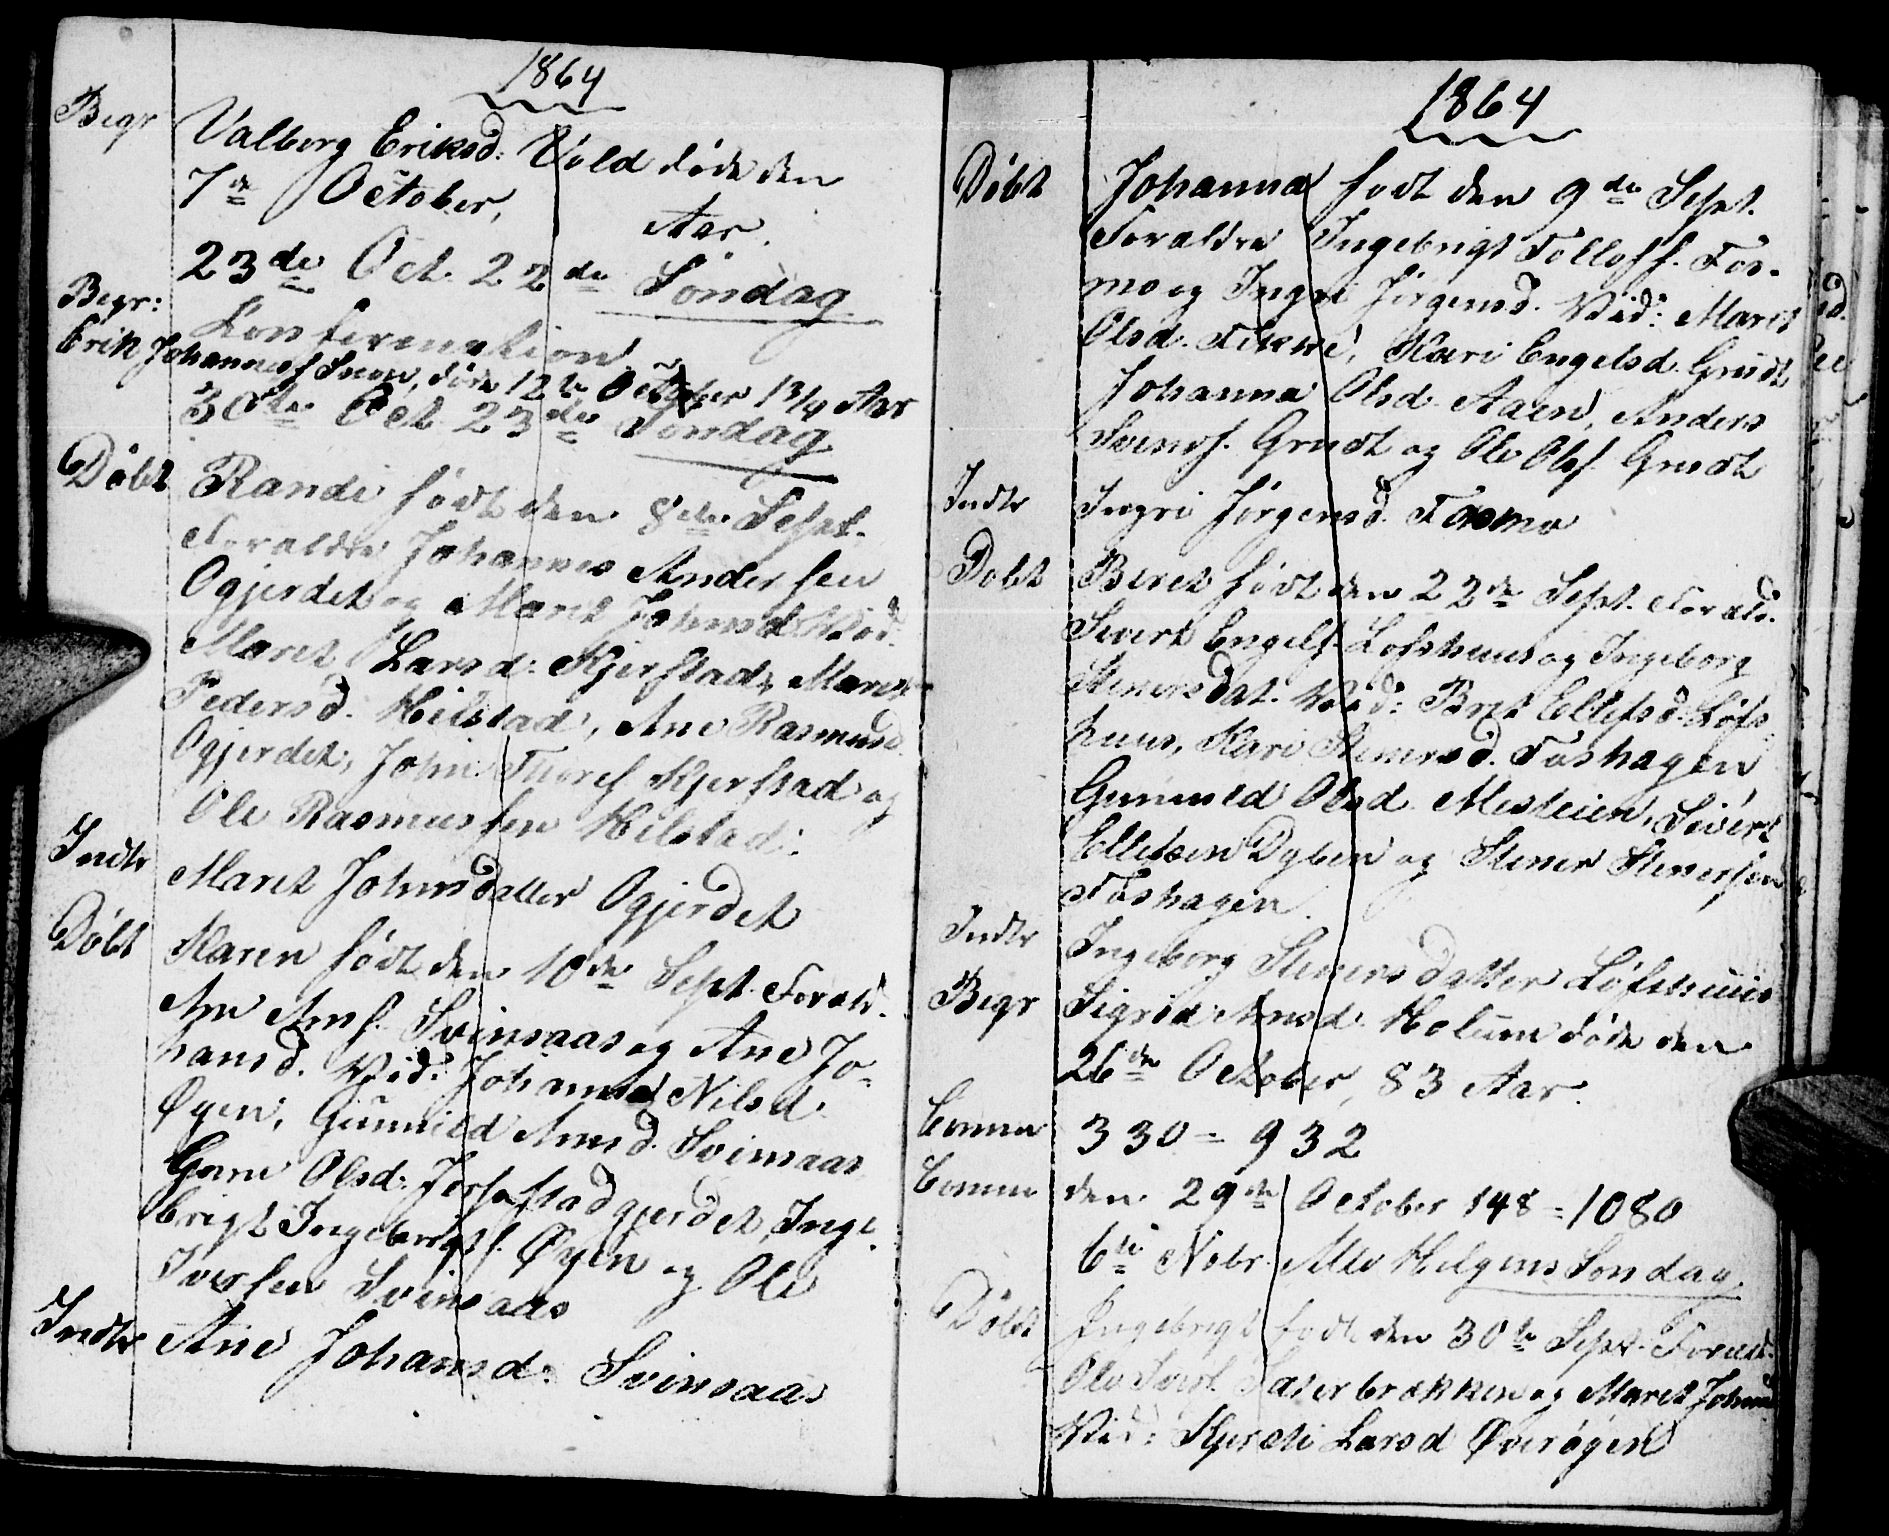 1864
Begr Valborg Eriksd: Vold døde den
7de October, Aar.
23de Oct. 22de Søndag
Begr: Confirmation
Erik Johannesf Snoen, døde 12te October 13/4 Aar
30te Oct 23de Søndag
Døbt Randi født den 8de Sept.
Foraldre Johannes Andersen
Ogjerdet og Maret Johnsd. Vid:
Maret Larsd: Kjerstad, Maret
Pedersd. Hilstad, Ane Rasmusd
Ogjerdet, John Thoresf Kjerstad og
Ole Rasmussen Hilstad.
Indtr Maret Johnsdatter Ogjerdet
Døbt Karen født den 10de Sept. Forald.
Arn Arnf. Svinsaas og Ane Jo-
hansd. Vid: Johanna Nilsd.
Øyen, Gunnild Arnsd. Svinsaas
Guru Olsd. Jorfastadgjerdet, Inge
brigt Ingebrigtf. Øyen og Ole
Iversen Svinsaas
Indtr Ane Johansd: Svinsaas
1864
Døbt Johanna født den 9de Sept.
Foraldre Ingebrigt Tolleff. Fos-
mo og Ingri Jørgensd. Vid: Maret
Olsd. Fikke, Kari Engelsd. Grudt
Johanna Olsd. Aaen, Anders
Svensf. Grudt og Ole Olsf. Grudt
Indtr Ingri Jørgensd. Fosmo
Døbt Beret født den 22de Sept. Forald.
Sivert Engelf. Lofshuus og Ingeborg
Stenersdat. Vid: Bret Ellefsd. Løfs-
huus, Kari Stenersd. Foshagen
Gunnild Olsd. Mesteien, Sivert
Ellefsen Dyben og Stener Stenersen
Foshagen.
Indtr Ingeborg Stenersdatter Løfshuus
Begr Sigrid Arnsd. Holum døde den
26de October, 83 Aar.
Comm 330 = 932
Comm den 29de October 148 = 1080
6te Nobr. Alle Helgens Søndag.
Døbt Ingebrigt født den 30te Sept. Forald.
Ole Iverf. Saterbrækken og Maret Johnsd
Vid: Kjersti Larsd Øverøyen